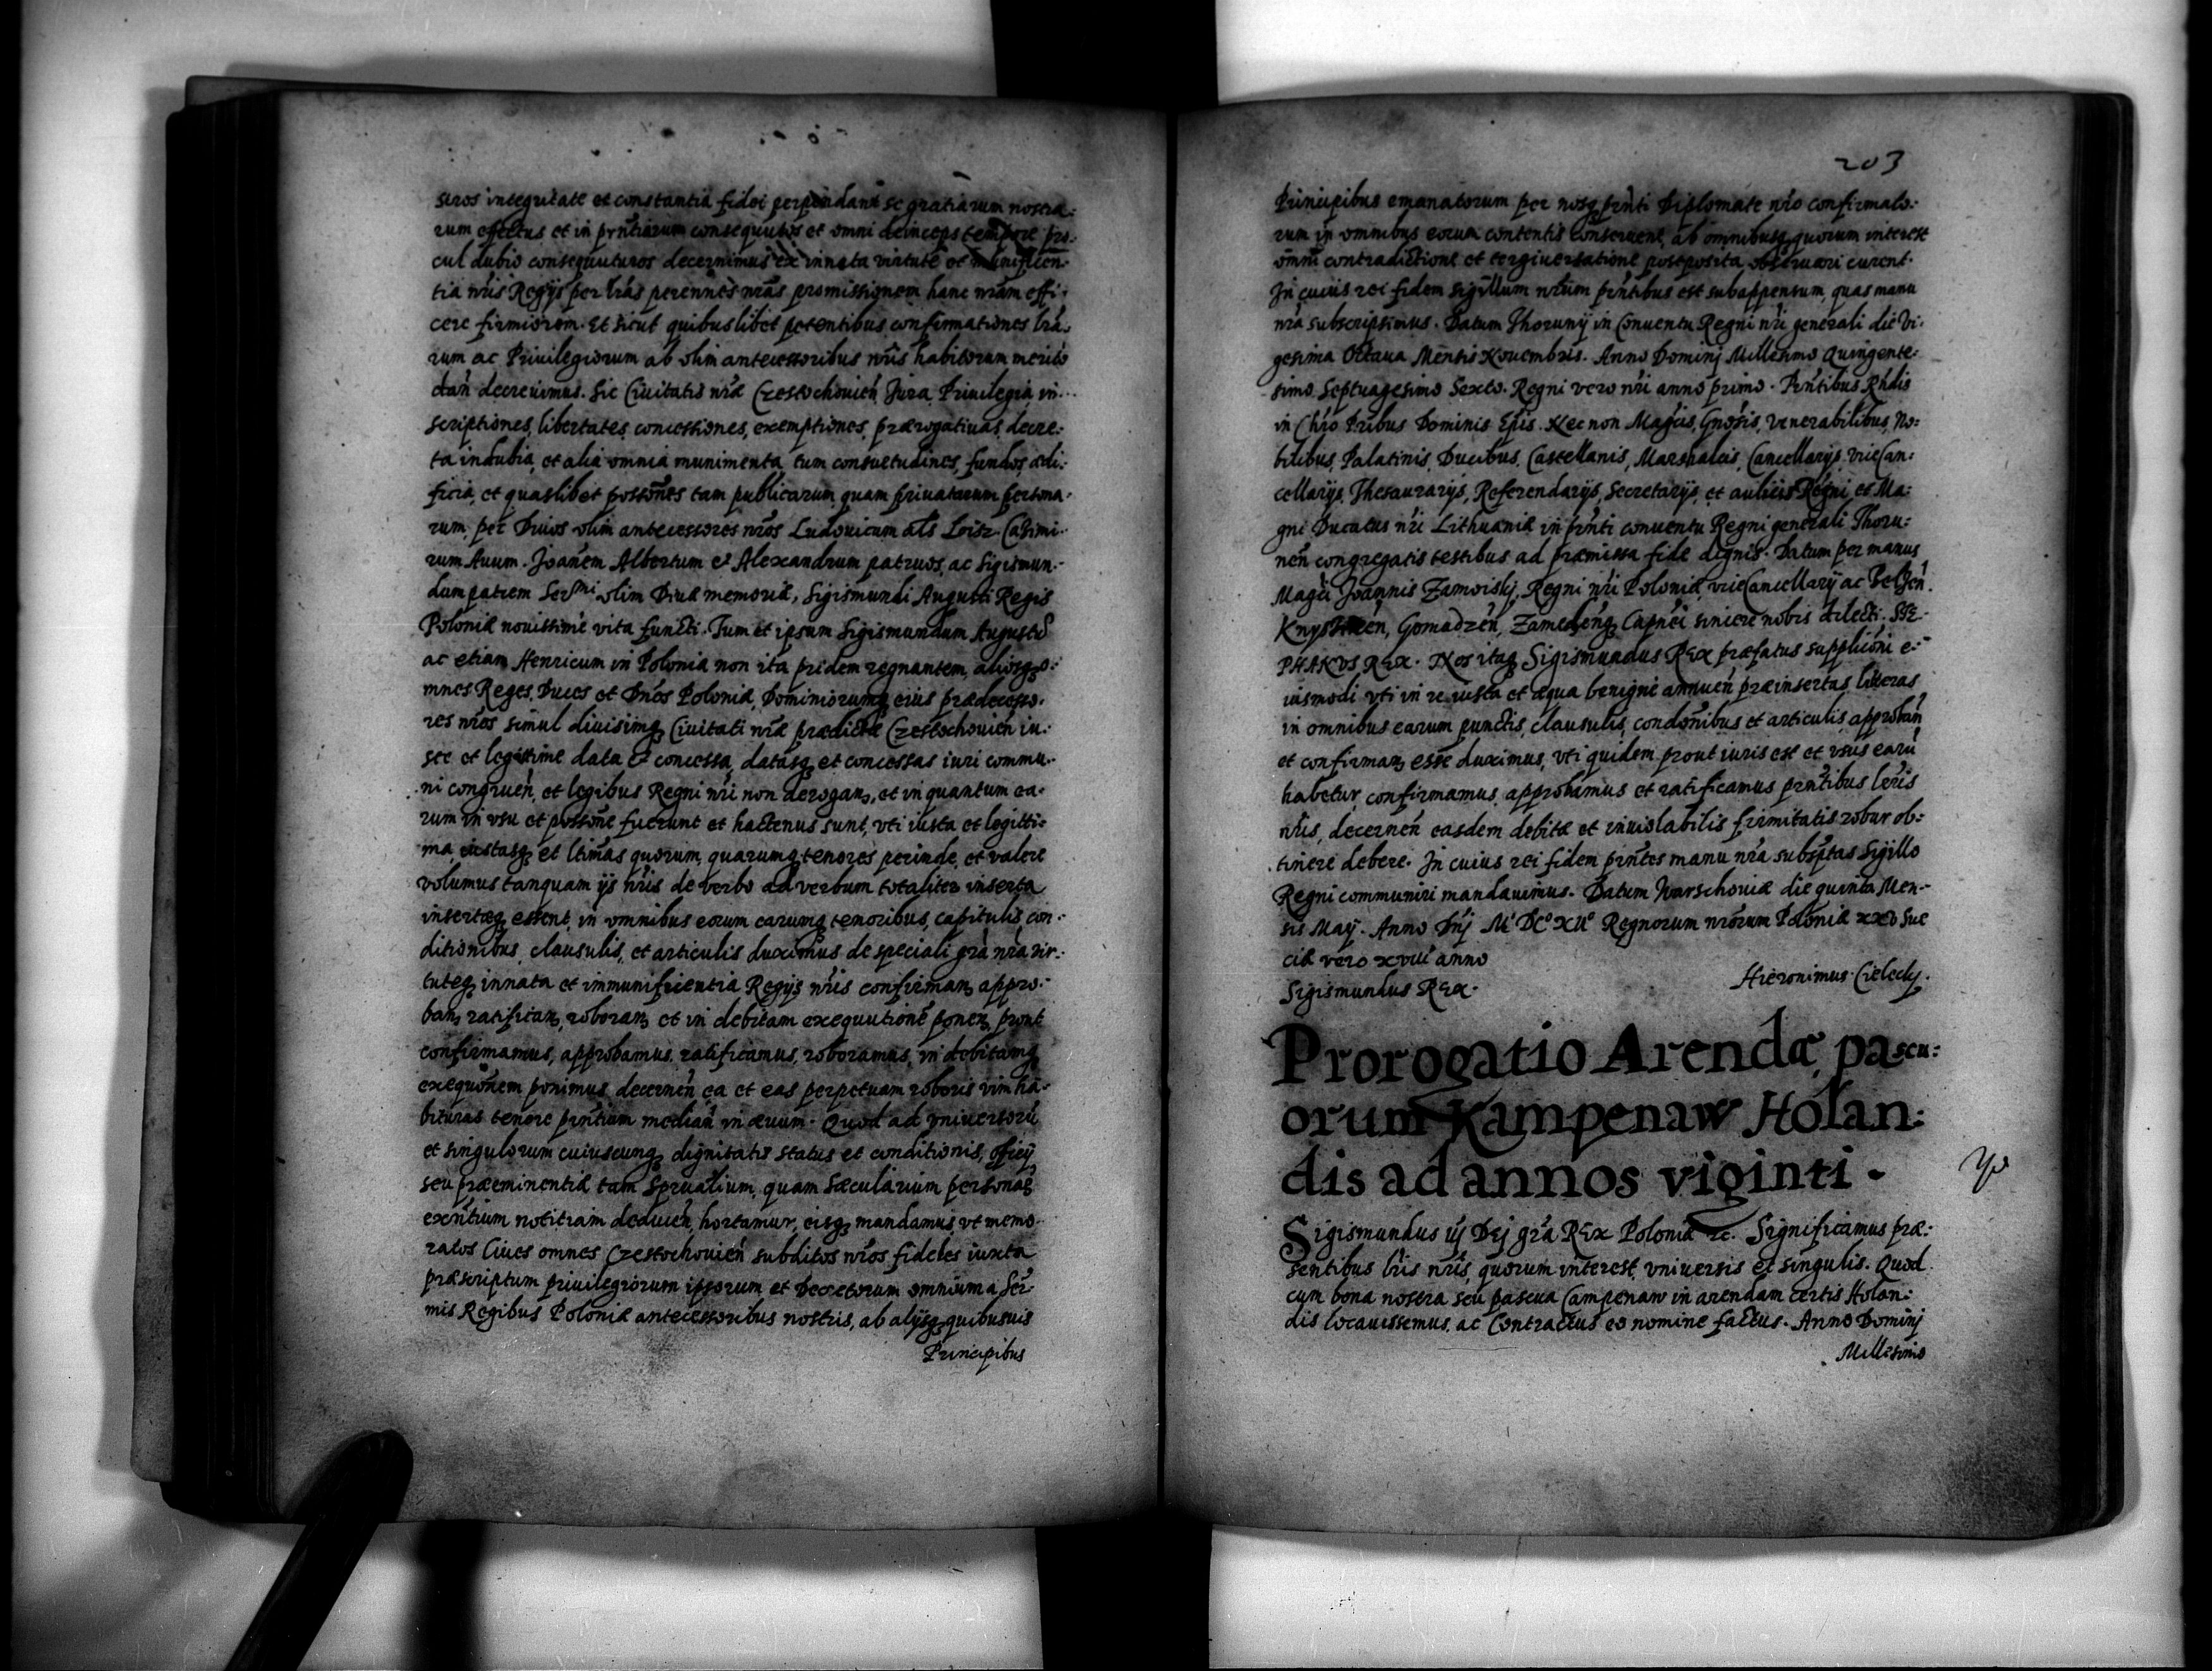 stros integritate et constantia fidei perpendant se gratiarum nostra:
rum effectus et in prńtiarum consequutos et omni deinceps tempore pro:
cul dubio consequuturos decernimus ex innata virtute et munificen:
tia nr̃is Regijs per lr̃as perennes nr̃as promissionem hanc nr̃am effi:
cere firmiorem. Et sicut quibuslibet petentibus confirmationes lrã:
rum ac Priuilegiorum ab olim antecessoribus nr̃is habitorum merito
dan̄ decreuimus. Sic Ciuitatis nr̃æ Czestochouien̄ Jura, Priuilegia in:
scriptiones, libertates, concessiones, exemptiones, prærogatiuas, decre:
ta indubia, et alia omnia munimenta, tum consuetudines, fundos ædi:
ficia, et quaslibet posso͠nes tam publicarum quam priuatarum persona:
rum, per Diuos olim antecessores nr̃os Ludouicum al̃s Loisz. Casimi:
rum Auum. Joan̄em Albertum et Alexandrum patruos, ac Sigismun:
dum patrem Ser͠mi olim Diuæ memoriæ, Sigismundi Augusti Regis
Poloniæ nouissime vita functi. Tum et ipsum Sigismundum Augustũ
ac etiam Henricum in Polonia non ita pridem regnantem, aliosq; o:
mnes Reges, Duces et Dn̄os Poloniæ, Dominiorumq; eius prædecesso:
res nr̃os simul diuisimq; Ciuitati nr̃æ prædictæ Czestochouien̄ iu:
ste et legittime data et concessa, datasq; et concessas iuri commu:
ni congruen̄, et legibus Regni nr̃i non derogan̄, et in quantum ea:
rum in vsu et posso͠ne fuerunt et hactenus sunt, vti iusta et legitti:
ma, iustasq; et ltĩmas quorum, quarumq; tenores perinde, et valere
volumus tanquam ijs nr̃is de verbo ad verbum totaliter inserta
insertæq; essent, in omnibus eorum earumq; tenoribus, capitulis, con:
ditionibus, clausulis, et articulis duximus de speciali grã nr̃a vir:
tuteq; innata et immunificientia Regijs nr̃is confirman̄, appro:
ban̄, ratifican̄, roboran̄, et in debitam exequutionẽ ponen̄, prout
confirmamus, approbamus, ratificamus, roboramus, in debitamq;
exequõnem ponimus, decernen̄ ea et eas perpetuam roboris vim ha:
bituras tenore prn̄tium median̄ in æuum. Quod ad vniuersorũ
et singulorum cuiuscunq; dignitatis status et conditionis, officij
seu præeminentiæ tam Sprualium, quam Sæcularium personas
exn̄tium notitiam deducen̄, hortamur, eisq; mandamus, vt memo:
ratos Ciues omnes Czestochouien̄ subditos nr̃os fideles iuxta
præscriptum priuilegiorum ipsorum et Decretorum omnium a Ser̃:
mis Regibus Poloniæ antecessoribus nostris, ab alijsq; quibusuis
Principibus
203
Principibus emanatorum per nosq; prn̄ti Diplomate nr̃o confirmato:
rum in omnibus eorum contentis conseruent, ab omnibusq; quorum interest
omni contradictione et tergiuersatione postposita obseruari curent.
In cuius rei fidem sigillum nr̃um prn̄tibus est subappensum, quas manu
nr̃a subscripsimus. Datum Thorunij in Conuentu Regni nr̃i generali die Vi:
gesima Octaua Mensis Nouembris. Anno Dominj Millesimo Quingente:
simo Septuagesimo Sexto. Regni vero nr̃i anno primo. Prn̄tibus Rn̄dis
in Chr̃o Pr̃ibus Dominis Ep̃is. Nec non Mag̃cis, Gnõsis, Venerabilibus, No:
bilibus, Palatinis, Ducibus, Castellanis, Marshalcis, Cancellarijs, viceCan:
cellarijs, Thesaurarijs, Referendarijs, Secretarijs, et aulicis Regni et Ma:
gni Ducatus nr̃i Lithuaniæ in prn̄ti conuentu Regni generali Thoru:
nen̄ congregatis testibus ad præmissa fide dignis. Datum per manus
Mag̃ci Joannis Zamoiskj, Regni nr̃i Poloniæ, viceCancellarij ac Belzen̄.
Knyshinen̄, Gomadzen̄, Zamechenq; Capn̄ei sincere nobis dilecti. STE:
PHANVS REX. Nos itaq; Sigismundus REX præfatus supplicõni e:
iusmodi vti in re iusta et æqua benigne annuen̄ præinsertas literas
in omnibus earum punctis, clausulis, conditõnibus et articulis approban̄
et confirman̄ esse duximus, vti quidem prout iuris est et vsus earũ
habetur, confirmamus, approbamus et ratificamus prn̄tibus lr̃is
nr̃is, decernen̄ easdem debitæ et inuiolabilis firmitatis robur ob:
tinere debere. In cuius rei fidem prn̄tes manu nr̃a subsp̃tas Sigillo
Regni communiri mandauimus. Datum Warschouiæ die quinta Men:
sis Maij. Anno Dn̄j Mº DCº XIIº Regnorum nr̃orum Poloniæ xxv Sue
ciæ vero xviii anno
Sigismundus REX.
Hieronimus Cielecky.
Prorogatio Arendæ pascu:
orum Kampenaw Holan:
dis ad annos viginti.
Sigismundus iij Dej grã REX Poloniæ etc. Significamus præ:
sentibus lr̃is nr̃is, quorum interest, vniuersis et singulis. Quod
cum bona nostra seu pascua Campenaw in arendam certis Holan:
dis locauissemus, ac Contractus eo nomine factus. Anno Dominj
Millesimo